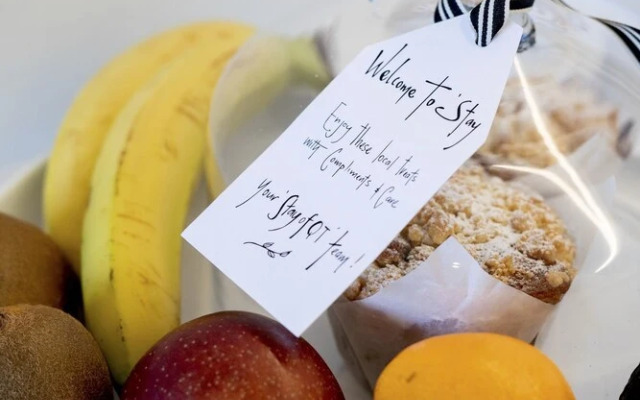 Welcome to 'Stay
Enjoy these local treats
with Compliments & Care
your 'Stay of QT' team!